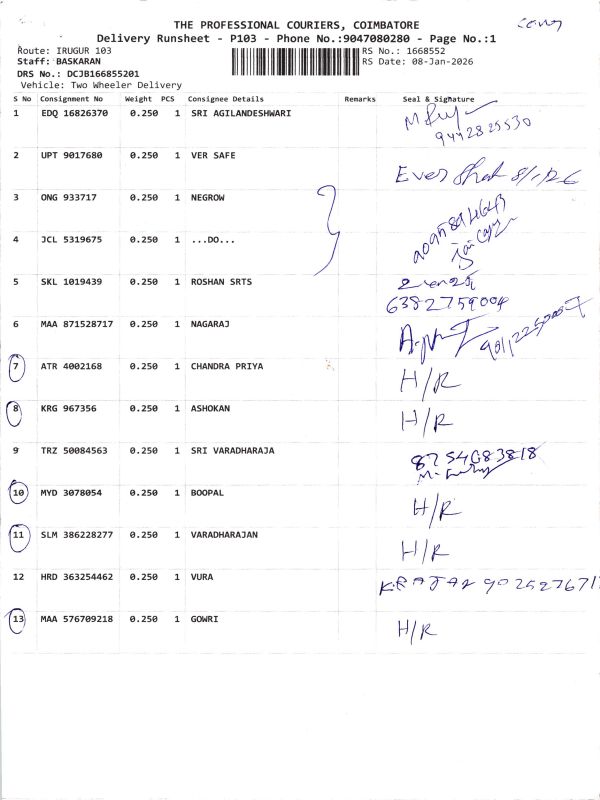 THE PROFESSIONAL COURIERS, COIMBATORE
Delivery Runsheet - P103 - Phone No.:9047080280 - Page No.:1
Route: IRUGUR 103
RS No.: 1668552
Staff: BASKARAN
RS Date: 08-Jan-2026
DRS No.: DCJB166855201
Vehicle: Two Wheeler Delivery
S No Consignment No Weight PCS Consignee Details Remarks Seal & Signature
1 EDQ 16826370 0.250 1 SRI AGILANDESHWARI
9442825530
2 UPT 9017680 0.250 1 VER SAFE
8/1/26
3 ONG 933717 0.250 1 NEGROW
4 JCL 5319675 0.250 1 ...DO...
5 SKL 1019439 0.250 1 ROSHAN SRTS
6382759004
6 MAA 871528717 0.250 1 NAGARAJ
7 ATR 4002168 0.250 1 CHANDRA PRIYA H/R
8 KRG 967356 0.250 1 ASHOKAN H/R
9 TRZ 50084563 0.250 1 SRI VARADHARAJA 8754083818
10 MYD 3078054 0.250 1 BOOPAL H/R
11 SLM 386228277 0.250 1 VARADHARAJAN H/R
12 HRD 363254462 0.250 1 VURA
13 MAA 576709218 0.250 1 GOWRI H/R